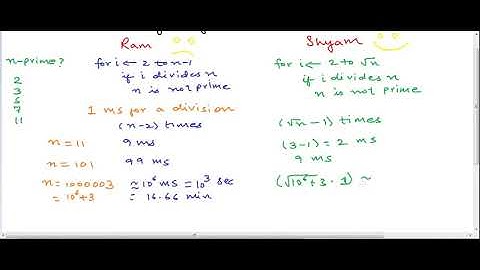 Ram
Shyam
n-prime?
for i ← 2 to n-1
if i divides n
n is not prime
for i ← 2 to √n
if i divides n
n is not prime
2
3
5
7
11
1 ms for a division
(n-2) times
(√n - 1) times
n = 11
9 ms
(3-1) = 2 ms
n = 101
99 ms
9 ms
n = 1000003
≈ 10⁶ ms = 10³ sec
(√10⁶+3 - 1) ≈
= 10⁶+3
= 16.66 min